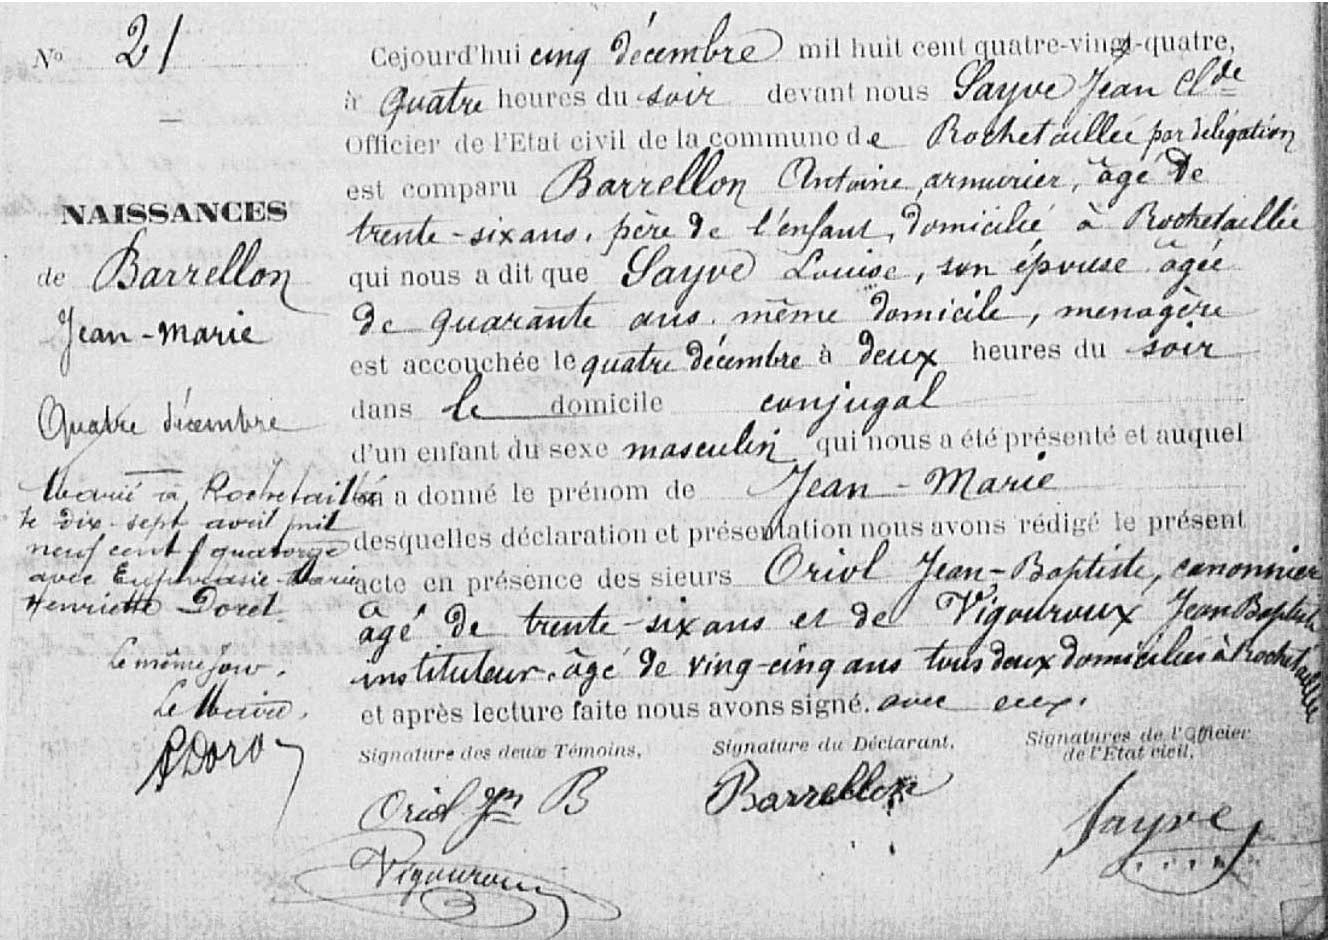 No 21
NAISSANCES
de Barrellon
Jean-Marie
Quatre décembre
Marié à Rochetaillée
le dix-sept avril mil
neuf cent quatorze
avec Euphrasie-Marie
Henriette Doret.
Le même jour.
Le Maire,
Cejourd'hui cinq décembre mil huit cent quatre-vingt-quatre,
à Quatre heures du soir devant nous Sayve Jean Cl de
Officier de l'Etat civil de la commune de Rochetaillée par délégation
est comparu Barrellon Antoine, armurier, âgé de
trente-six ans, père de l'enfant, domicilié à Rochetaillée
qui nous a dit que Sayve Louise, son épouse âgée
de quarante ans même domicile, menagère
est accouchée le quatre décembre à deux heures du soir
dans le domicile conjugal
d'un enfant du sexe masculin qui nous a été présenté et auquel
on a donné le prénom de Jean-Marie
desquelles déclaration et présentation nous avons rédigé le présent
acte en présence des sieurs Oriol Jean-Baptiste, canonnier
âgé de trente-six ans et de Vigouroux Jean Baptiste
instituteur, âgé de ving-cinq ans tous deux domiciliés à Rochetaillée
et après lecture faite nous avons signé. avec eux.
Signature des deux Témoins, Signature du Déclarant, Signatures de l'Officier
de l'Etat civil,
Oriol Jn B Barrellon Sayve
Vigouroux